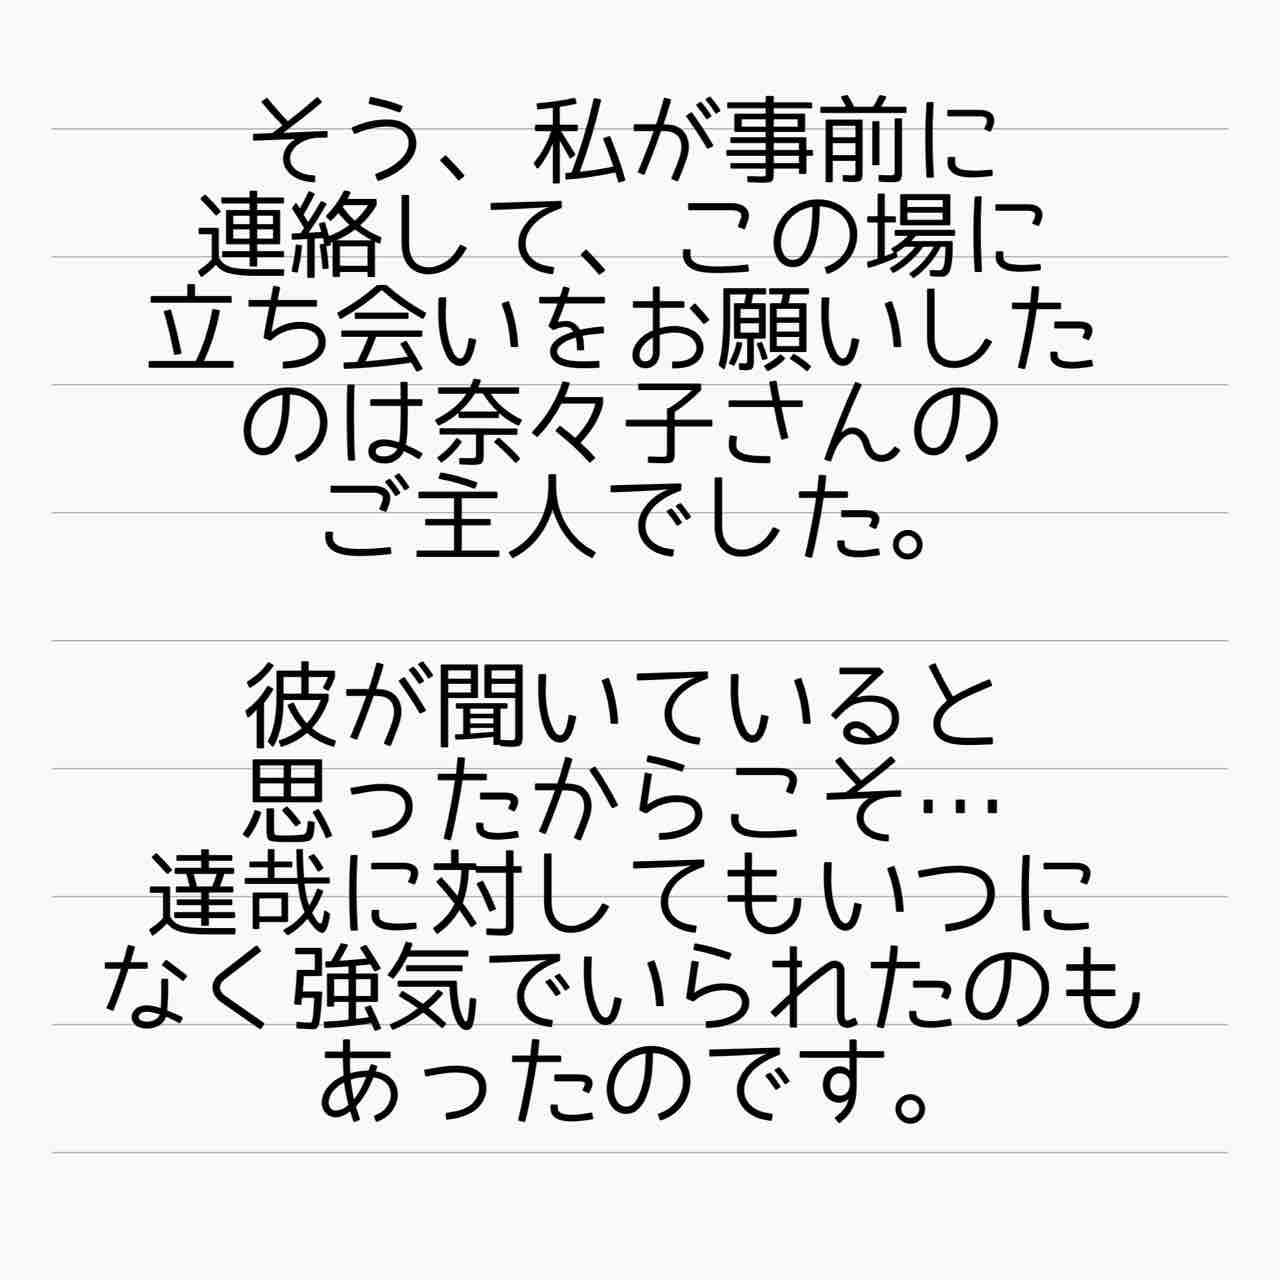 そう、私が事前に
連絡して、この場に
立ち会いをお願いした
のは奈々子さんの
ご主人でした。
彼が聞いていると
思ったからこそ…
達哉に対してもいつに
なく強気でいられたのも
あったのです。